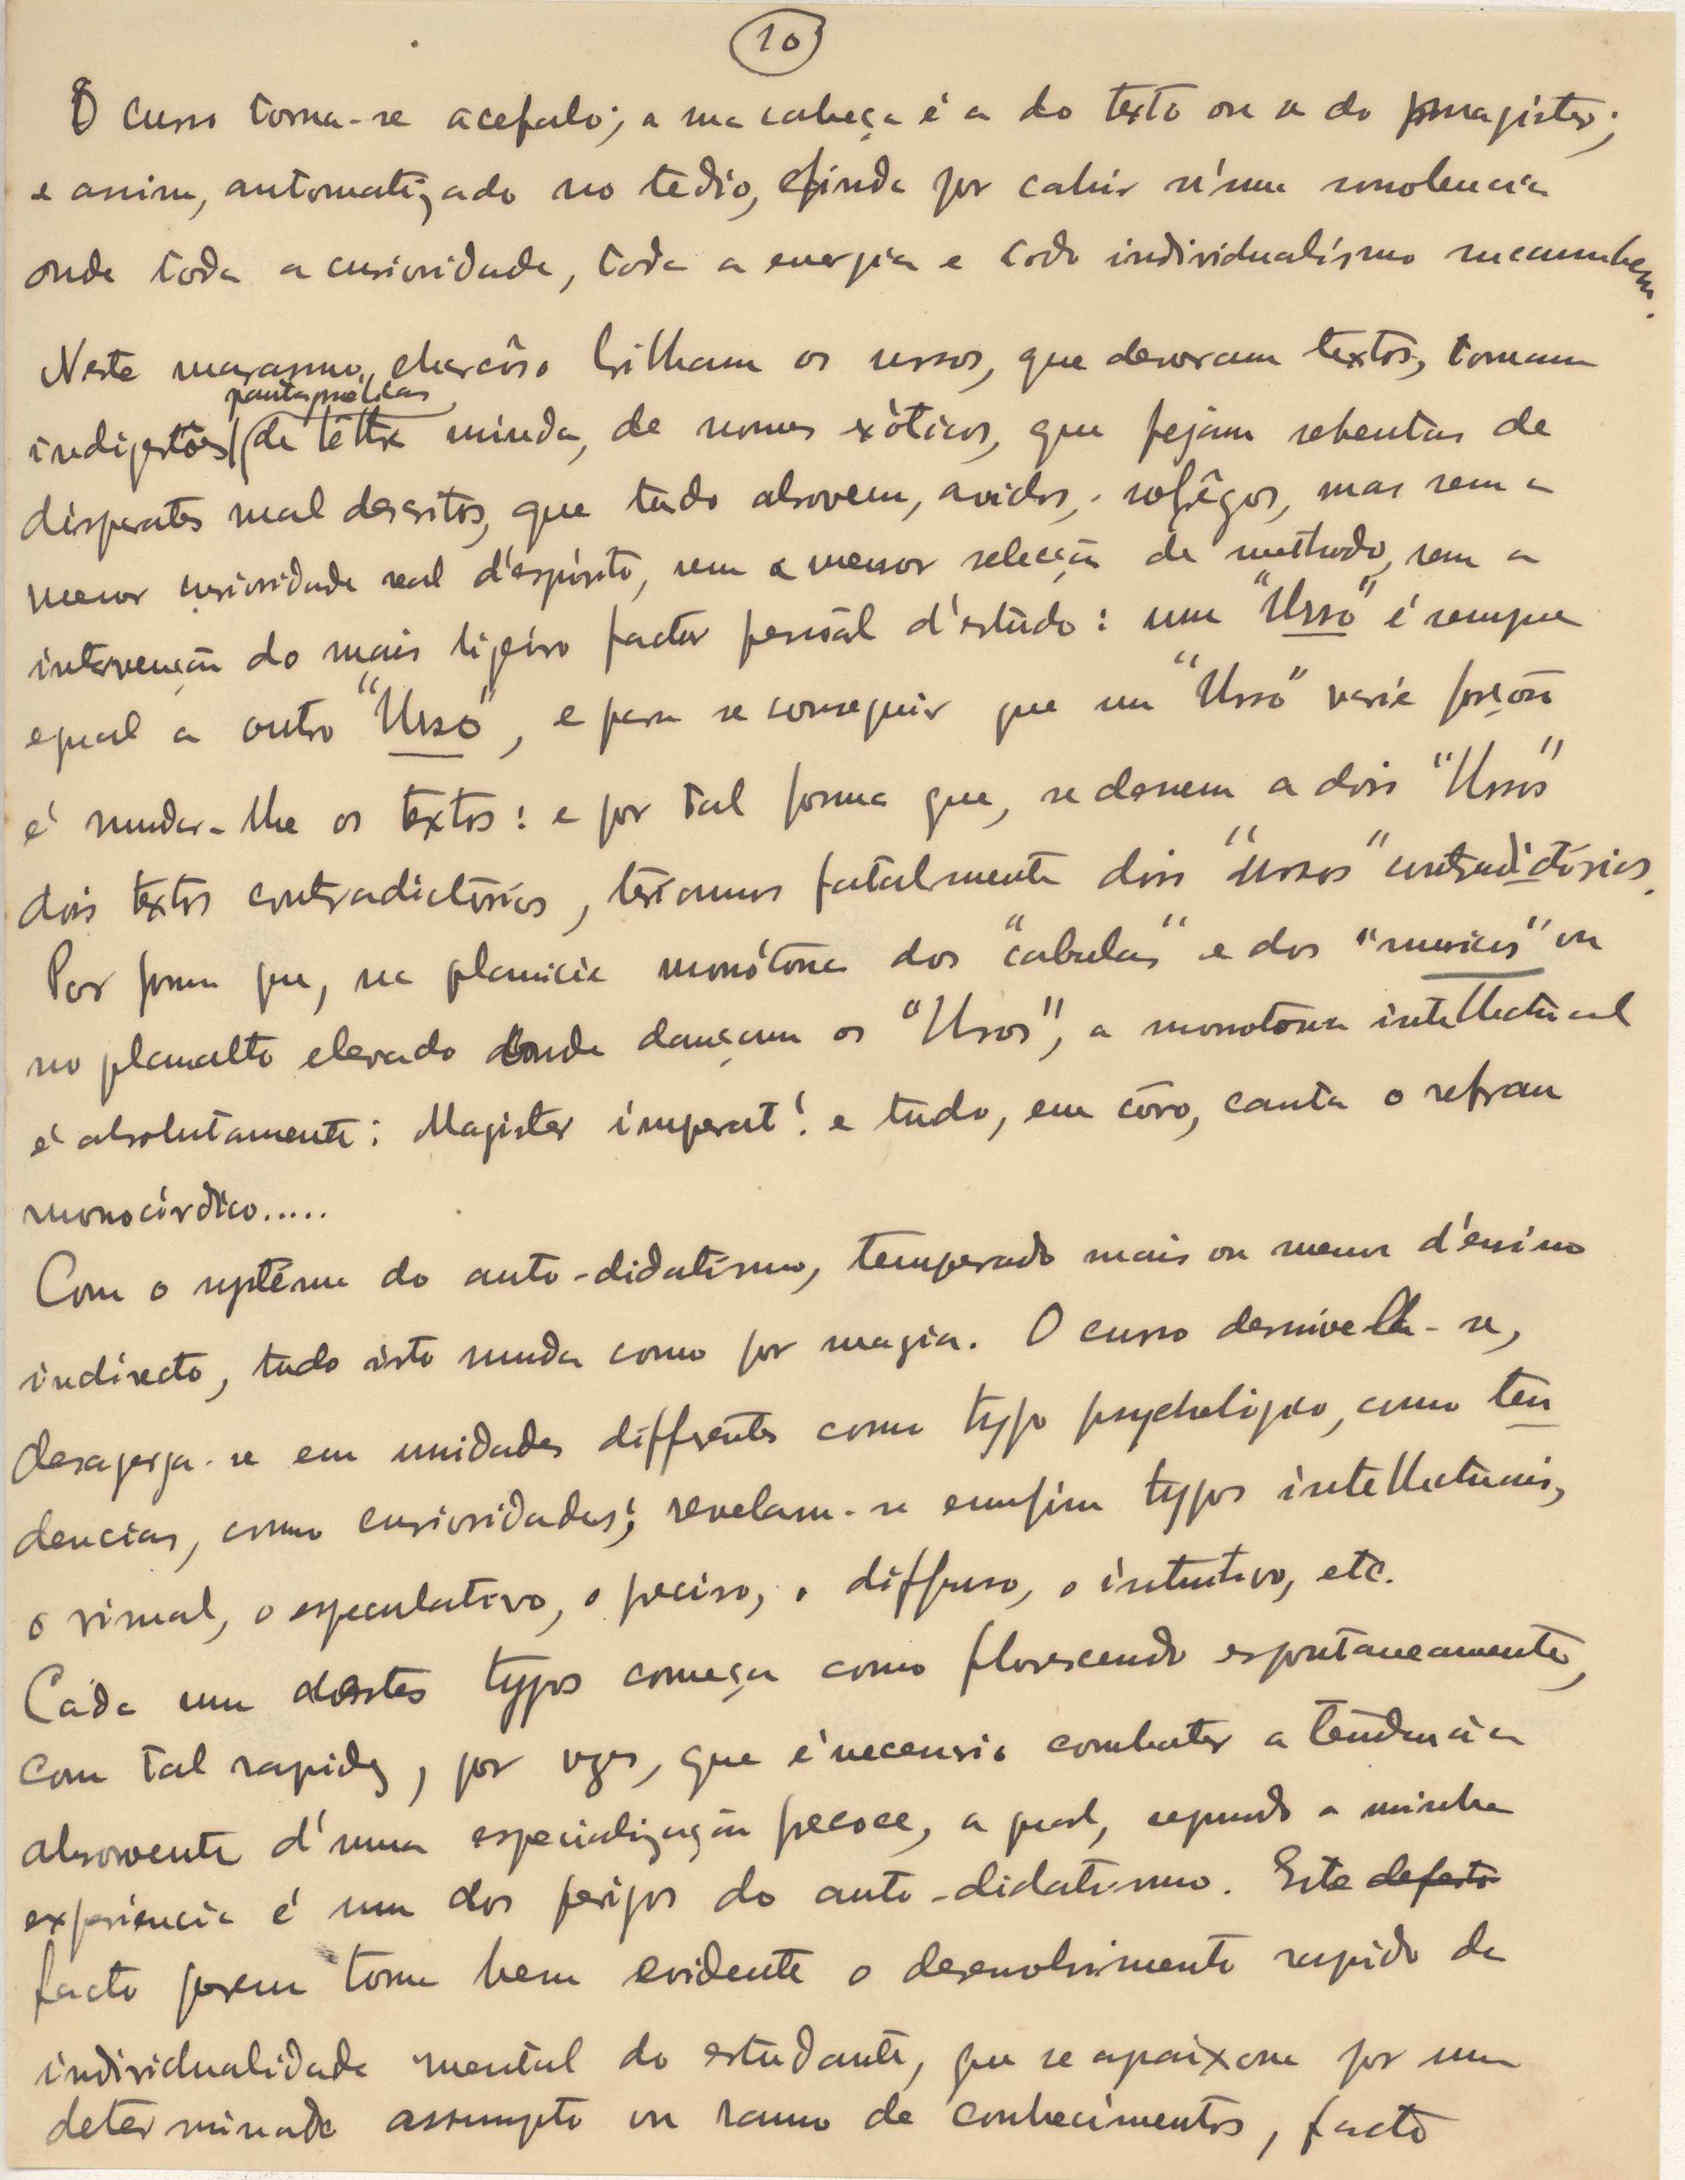 10
O curso torna-se acefalo; a sua cabeça é a do texto ou a do magister;
e assim, automatizado no tedio, finda por cahir n'uma sonolencia
onde toda a curiosidade, toda a energia e todo individualismo succumbem.
Neste marasmo, charcôso brilham os ursos, que devoram textos, tomam
indigestões de léttra miuda, de nomes exòticos, que pejam sebentas de
disparates mal descritos, que tudo absovem, avidos, sofrêgos, mas sem a
menor curiosidade real d'espirito, sem a menor selecção de methodo, sem a
intervenção do mais ligeiro factor pessoal d'estudo: um "Urso" é sempre
egual a outro "Urso", e para se conseguir que um "Urso" varie forçoso
é mudar-lhe os textos: e por tal forma que, se derem a dois "Ursos"
dois textos contradictorios, teriamos fatalmente dois "Ursos" contradictorios.
Por forma que, na planicie monótona dos "cabulas" e dos "medios" ou
no planalto elevado onde dançam os "Ursos", a monotonia intellectual
é absolutamente: Magister imperat! e tudo, em côro, canta o refran
monocórdico.....
Com o systéma do auto-didatismo, temperado mais ou menos d'ensino
indirecto, tudo isto muda como por magia. O curso desnivella-se,
desagrega-se em unidades differentes como typo psychologico, como ten
dencias, como curiosidades; revelam-se emfim typos intellectuais,
o visual, o especulativo, o preciso, o diffuso, o intuitivo, etc.
Cada um destes typos começa como florescendo espontaneamente,
com tal rapidez, por vezes, que é necessario combater a tendencia
absorvente d'uma especialização precoce, a qual, segundo a minha
experiencia é um dos perigos do auto-didatismo. Este defeito
facto porem torna bem evidente o desenvolvimento rapido da
individualidade mental do estudante, que se apaixona por um
determinado assumpto ou ramo de conhecimentos, facto